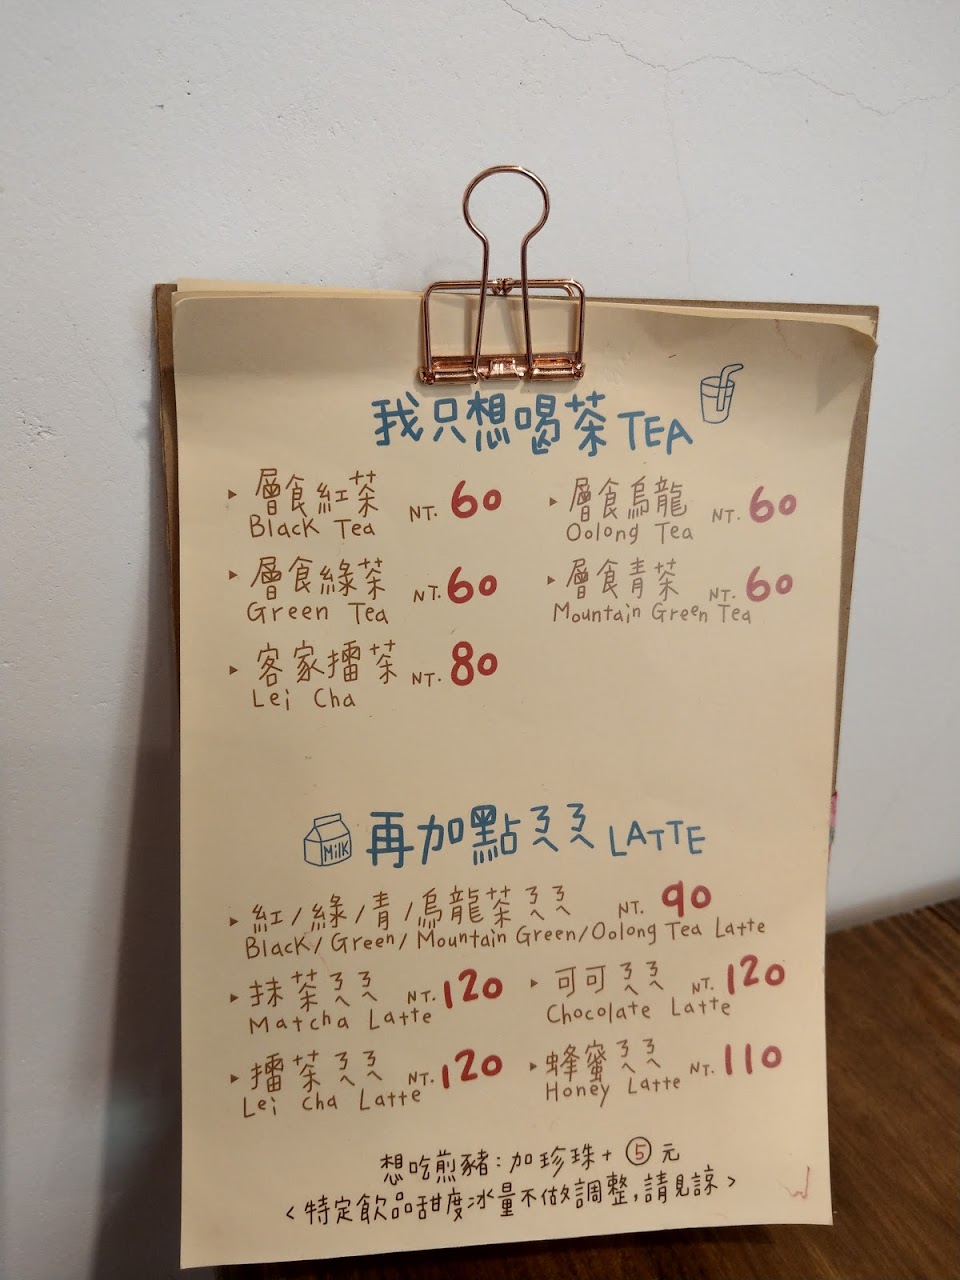 我只想喝茶 TEA
層食紅茶 NT. 60
Black Tea
層食烏龍 NT. 60
Oolong Tea
層食綠茶 NT. 60
Green Tea
層食青茶 NT. 60
Mountain Green Tea
客家擂茶 NT. 80
Lei Cha
MilK
再加點ㄋㄟㄋㄟ LATTE
紅/綠/青/烏龍茶ㄋㄟㄋㄟ NT. 90
Black/Green/Mountain Green/Oolong Tea Latte
抹茶ㄋㄟㄋㄟ NT. 120
Matcha Latte
可可ㄋㄟㄋㄟ NT. 120
Chocolate Latte
擂茶ㄋㄟㄋㄟ NT. 120
Lei Cha Latte
蜂蜜ㄋㄟㄋㄟ NT. 110
Honey Latte
想吃煎豬:加珍珠+⑤元
<特定飲品甜度冰量不做調整,請見諒>